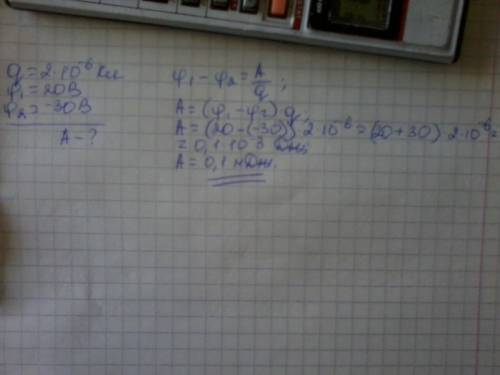 q = 2·10⁻⁶ Кл
φ₁ = 20В
φ₂ = -30В
A - ?
φ₁ - φ₂ = A/q ;
A = (φ₁ - φ₂) q ;
A = (20 - (-30)) 2·10⁻⁶ = (20 + 30) 2·10⁻⁶ =
= 0,1·10⁻³ Дж;
A = 0,1 мДж.